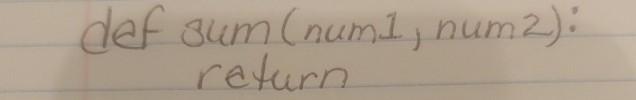 def sum(num1, num2):
return